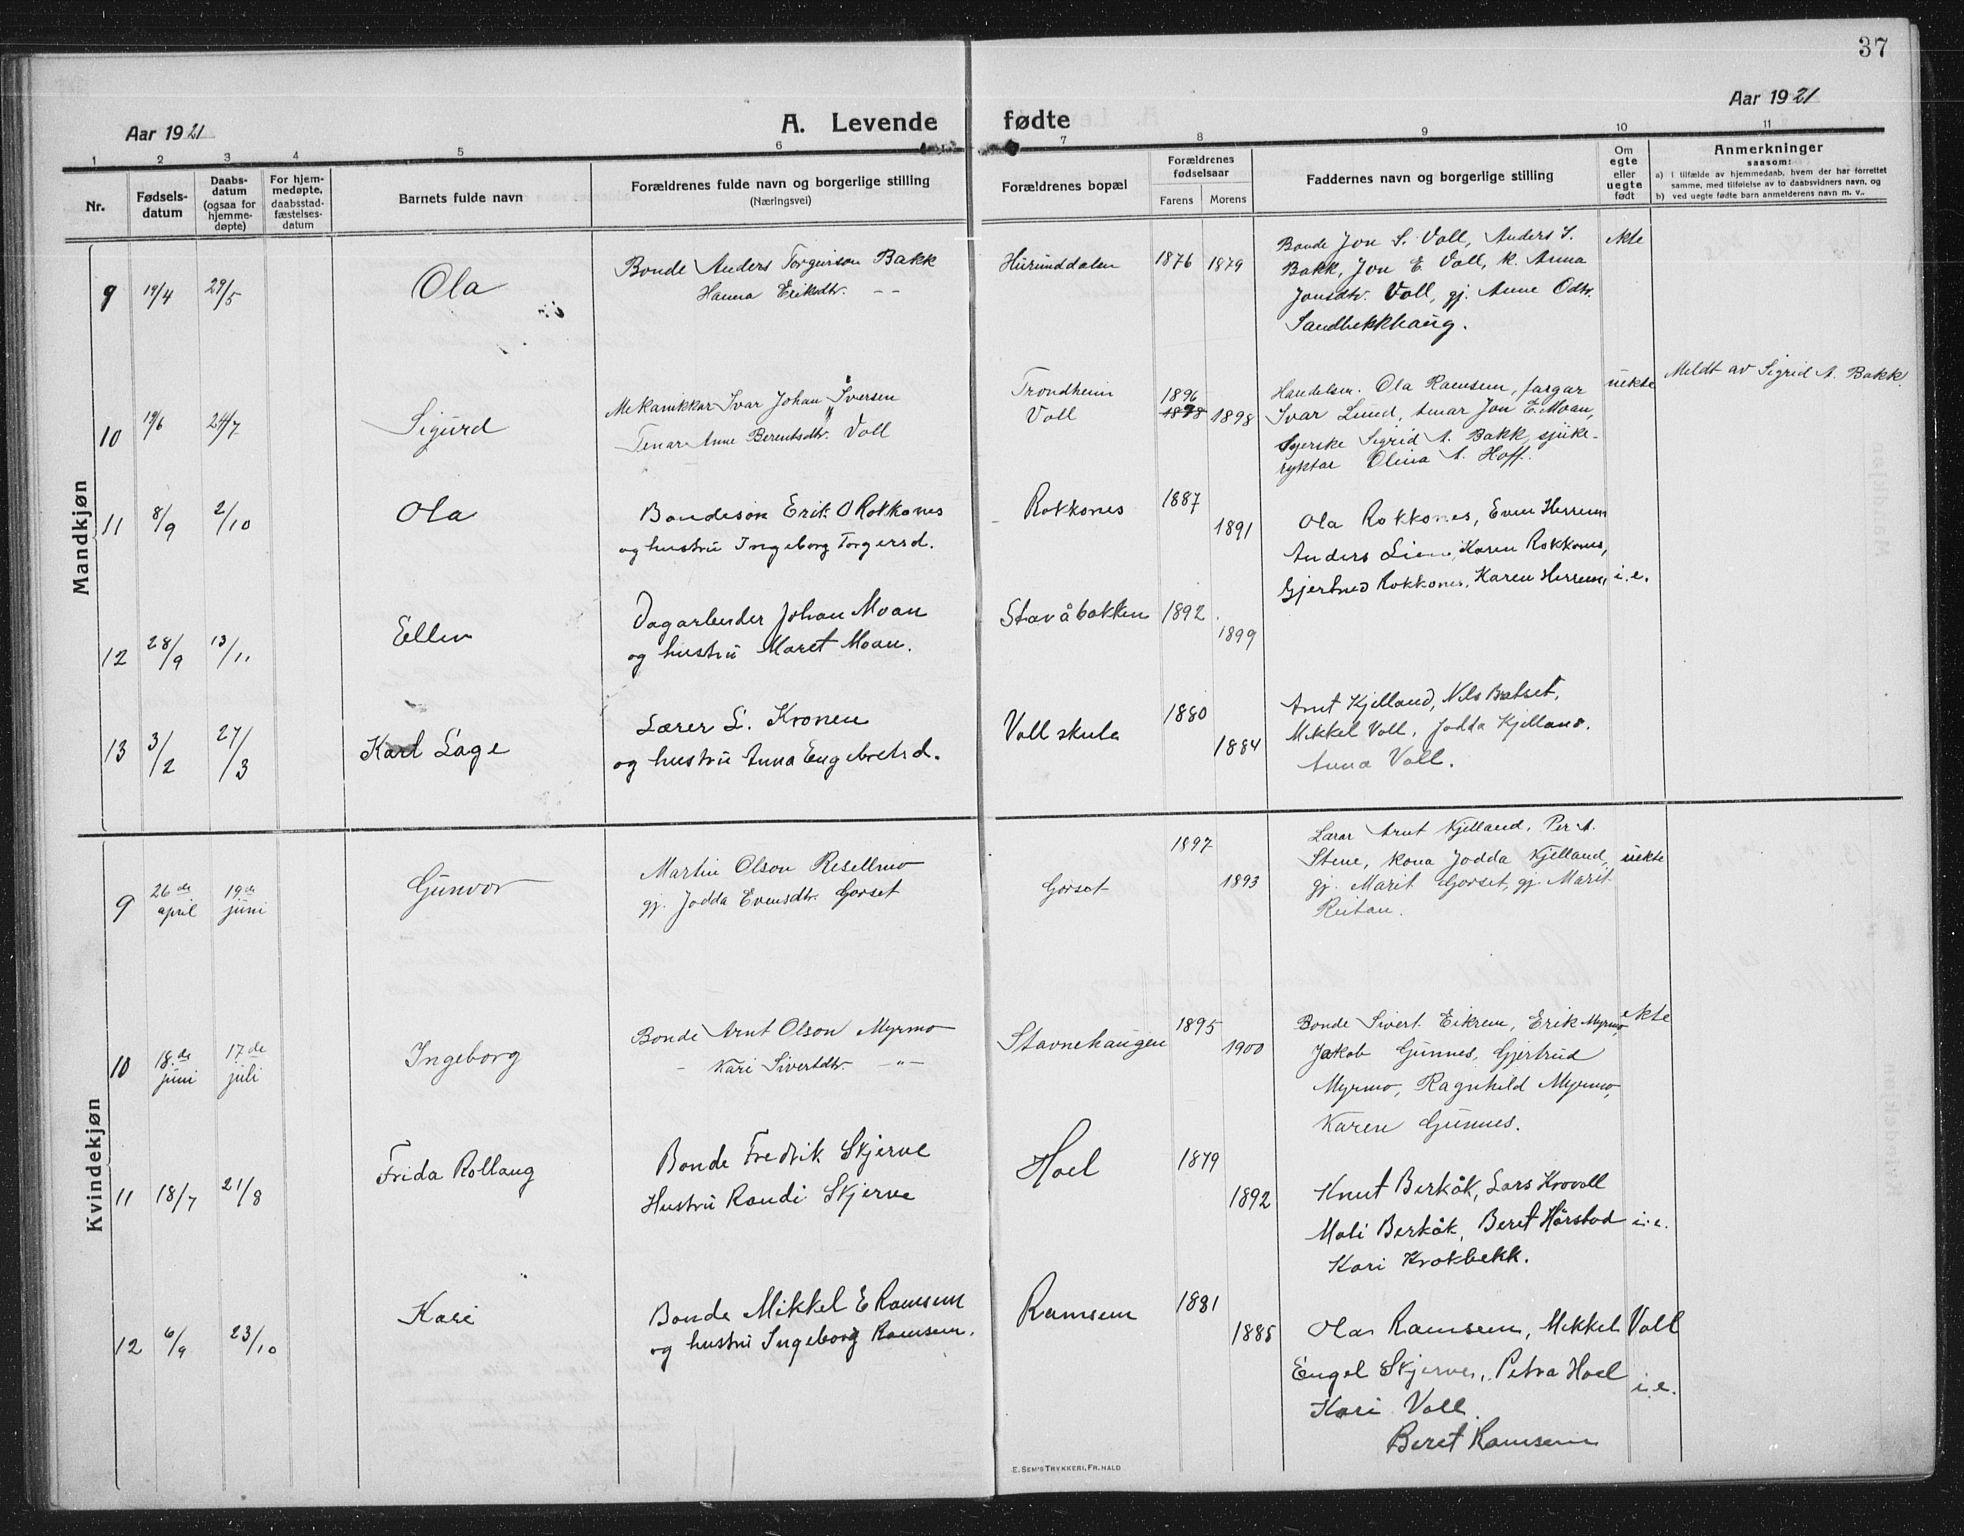 37
Aar 1921
A. Levende fødte
Aar 1921
1 2 3 4 5 6 7 8 9 10 11
Nr.
Fødsels-
datum
Daabs-
datum
(ogsaa for
hjemme-
døpte)
For hjem-
medøpte,
daabsstad-
fæstelses-
datum
Barnets fulde navn
Forældrenes fulde navn og borgerlige stilling
(Næringsvei)
Forældrenes bopæl
Forældrenes
fødselsaar
Farens Morens
Faddernes navn og borgerlige stilling
Om
egte
eller
uegte
født
Anmerkninger
saasom:
a) i tilfælde av hjemmedaab, hvem der har forrettet
samme, med tilføielse av to daabsvidners navn, og
b) ved uegte fødte barn anmelderens navn m. v..
Mandkjøn
9 19/4 29/5 Ola
Bonde Anders Torgerson Bakk
Hanna Eriksdtr. - -
Hurunddalen 1876 1879
Bonde Jon S. Voll, Anders S.
Bakk, Jon E. Voll, k. Anna
Jonsdtr. Voll, gj. Anne Odtr.
Sandbekkhaug.
ekte
10 19/6 24/7 Sigurd
Mekanikkar Ivar Johan Iversen
Tenar Anne Berentsdtr. Voll
Trondheim
Voll
1896
1898 1898
Handelsm. Ola Ramsem, fargar
Ivar Lund, tenar Jon E. Moan,
Syerske Sigrid A. Bakk, sjuke-
ryktar Olina A. Hoff.
uekte
Meldt av Sigrid A. Bakk
11 8/9 2/10 Ola
Bondeson Erik O Rokkones
og hustru Ingeborg Torgersd.
Rokkones 1887
1891
Ola Rokkones, Even Herrem
Anders Lien, Karen Rokkones,
Gjertrud Rokkones, Karen Herrem, i.e.
12 28/9 13/11 Ellen
Dagarbeider Johan Moan
og hustru Maret Moan.
Stavåbakken 1892
1899
13 3/2 27/3 Karl Lage
Lærer L. Kronen
og hustru Anna Engebretsd.
Voll skule 1880
1884
Arnt Kjelland, Nils Bakset,
Mikkel Voll, Jodda Kjelland.
Anna Voll.
Kvindekjøn
9 26de april 19de juni Gunvor
Martin Olson Resellmo
gj. Jodda Evensdtr. Gorset
Gorset
1897
1893
Lærar Arnt Kjelland, Per A.
Stene, kona Jodda Kjelland,
gj. Marit Gorset, gj. Marit
Reitan.
uekte
10 18de juni 17de juli Ingeborg
Bonde Arnt Olson Myrmo
- Kari Sivertdtr. - " -
Stavnehaugen
1895
1900
Bonde Sivert Eikrem, Erik Myrmo,
Jakob Gunnes, Gjertrud
Myrmo, Ragnhild Myrmo,
Karen Gunnes.
ekte
11 18/7 21/8 Frida Rollaug
Bonde Fredrik Skjerve
Hustru Randi Skjerve
Hoel 1879
1892
Knut Berkåk, Lars Krovoll
Mali Berkåk, Beret Hårstad i.e.
Kari Krokbekk.
12 6/9 23/10 Kari
Bonde Mikkel E Ramsem
og hustru Ingeborg Ramsem.
Ramsem 1881
1885
Ola Ramsem, Mikkel Voll
Engel Skjerve, Petra Hoel i.e.
Kari Voll.
Beret Ramsem
E. Sem's Trykkeri, Fr.hald